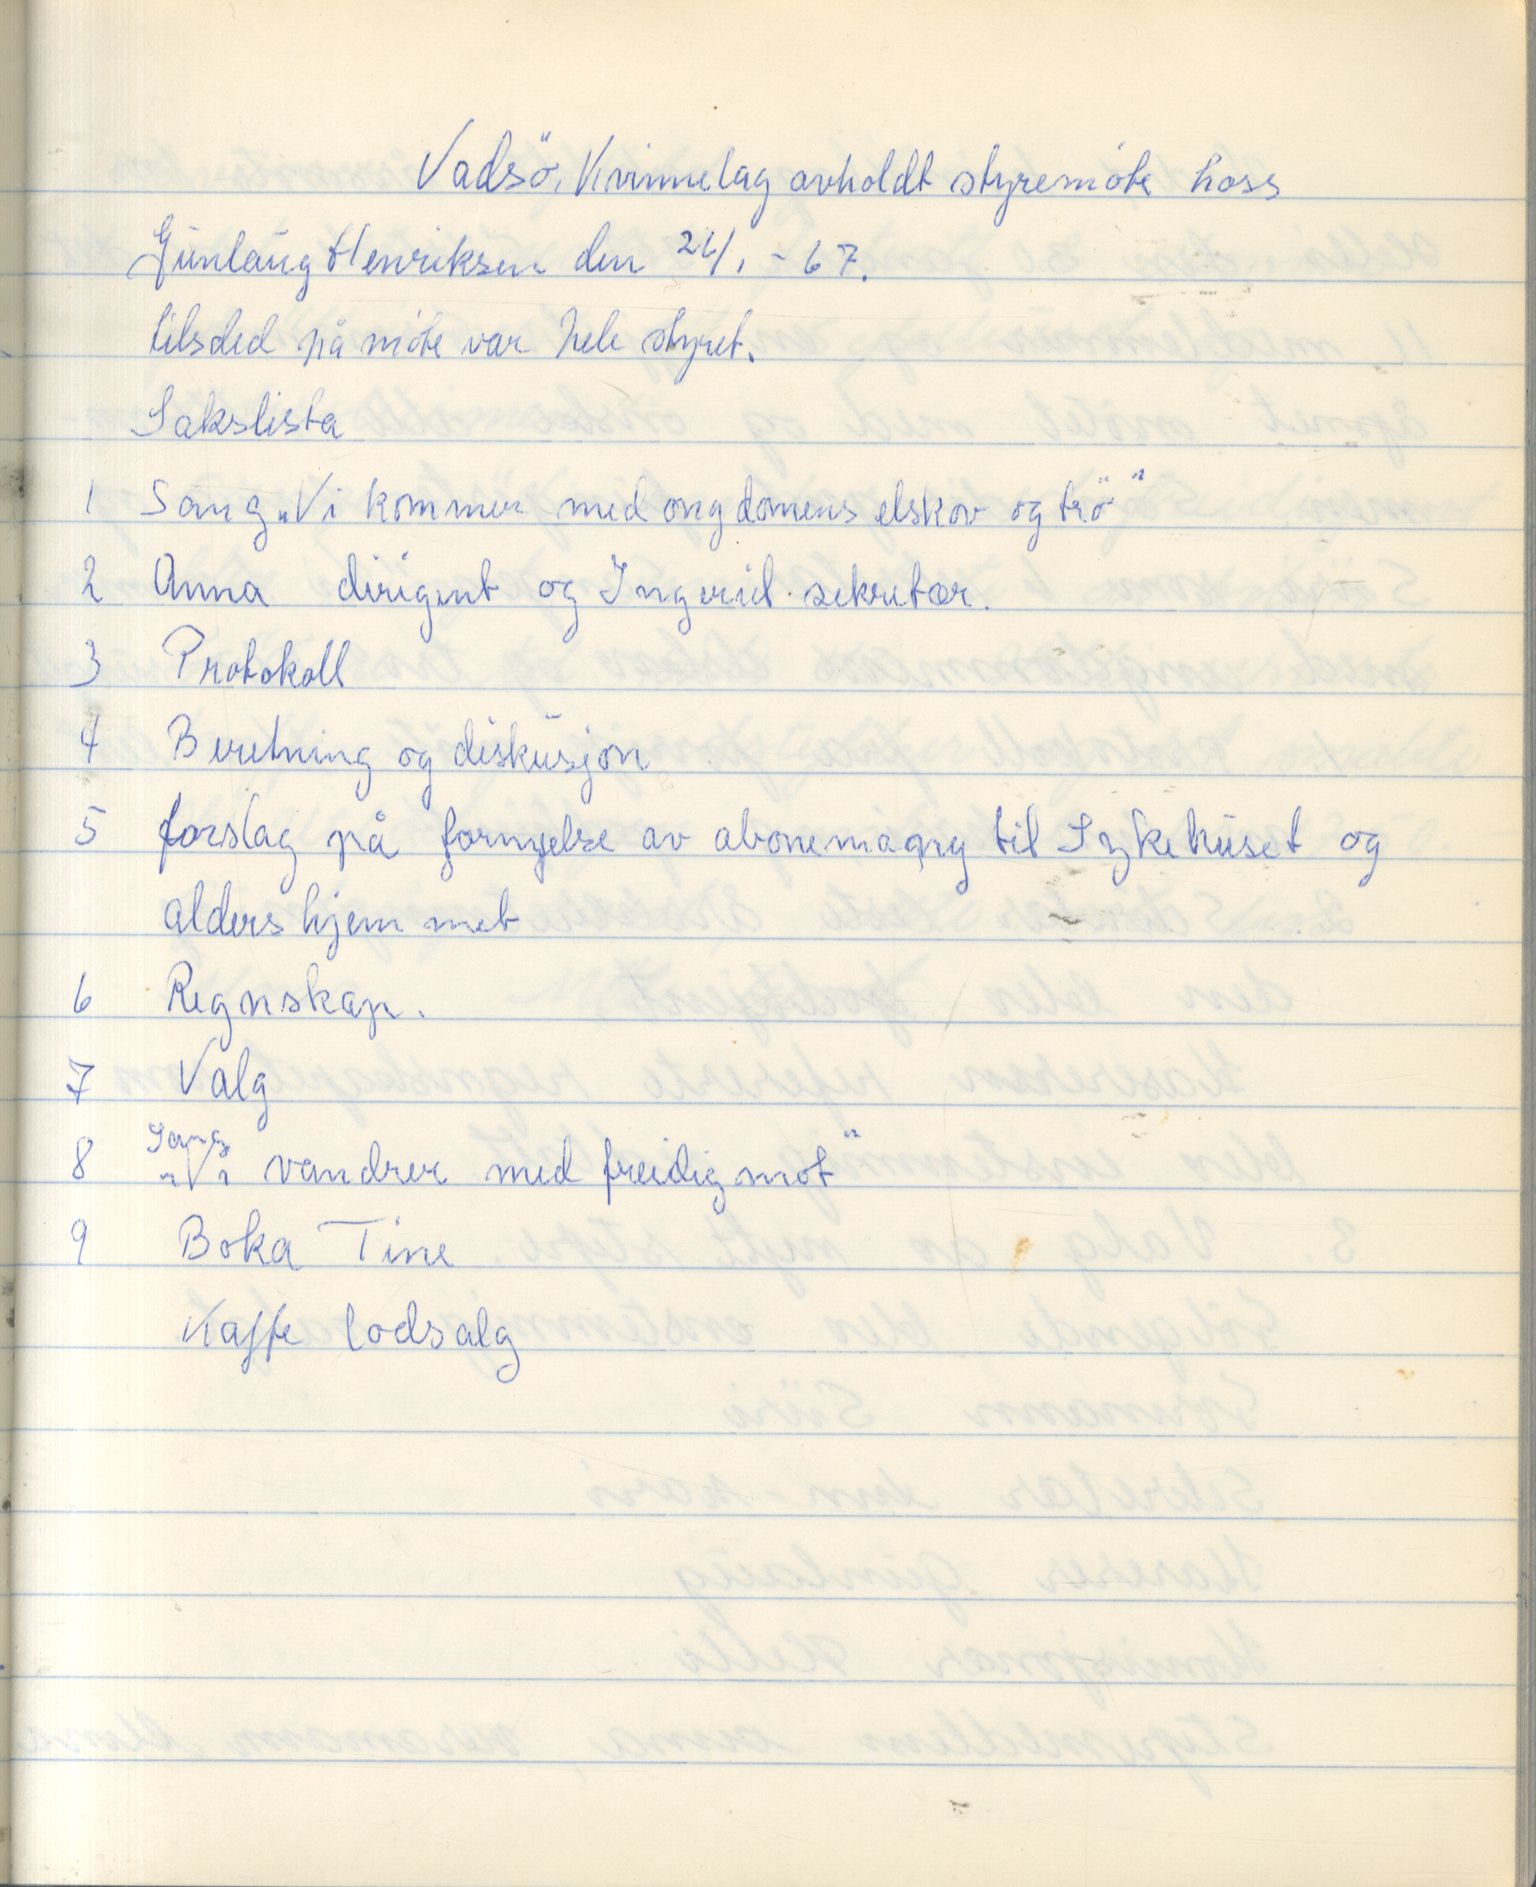 Vadsö, Kvinnelag avholdt styremöte hoss
Gunlaug Henriksen den 24/1 - 67.
tilsded på möte var hele styret.
Sakslista
1 Sang „Vi kommer med ongdomens elskov og trö"
2 Anna dirigent og Ingerid sekretær.
3 Protokoll
4 Beretning og diskusjon
5 forslag på fornyelse av til Sykehuset og
aldershjemmet
6 Regnskap.
7 Valg
8 Sang „Vi vandrer med freidig mot"
9 Boka Tine
Kaffe lodsalg